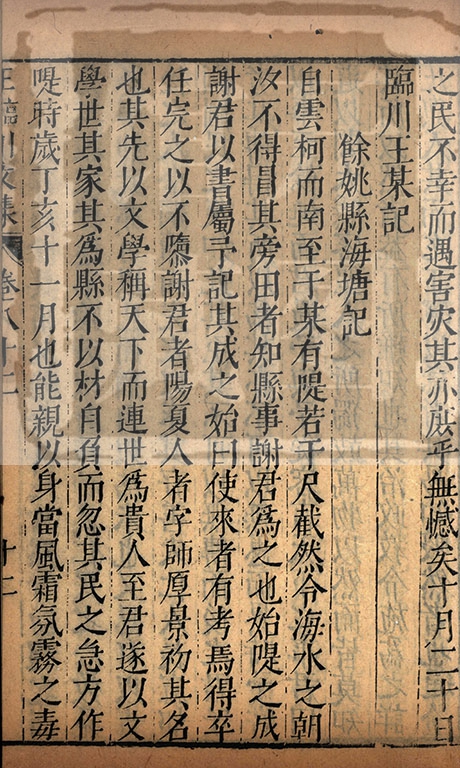 之民不幸而遇害灾其亦庶乎無憾矣十月二十日
臨川王某記
餘姚縣海塘記
自雲柯而南至于某有隄若干尺截然令海水之朝
汝不得冒其旁田者知縣事謝君爲之也始隄之成
謝君以書屬予記其成之始曰使來者有考焉得卒
任完之以不隳謝君者陽夏人者字師厚景初其名
也其先以文學稱天下而連世爲貴人至君遂以文
學世其家其爲縣不以材自負而忽其民之急方作
隄時歲丁亥十一月也能親以身當風霜氛霧之毒
王臨川文集 卷八十二 十二